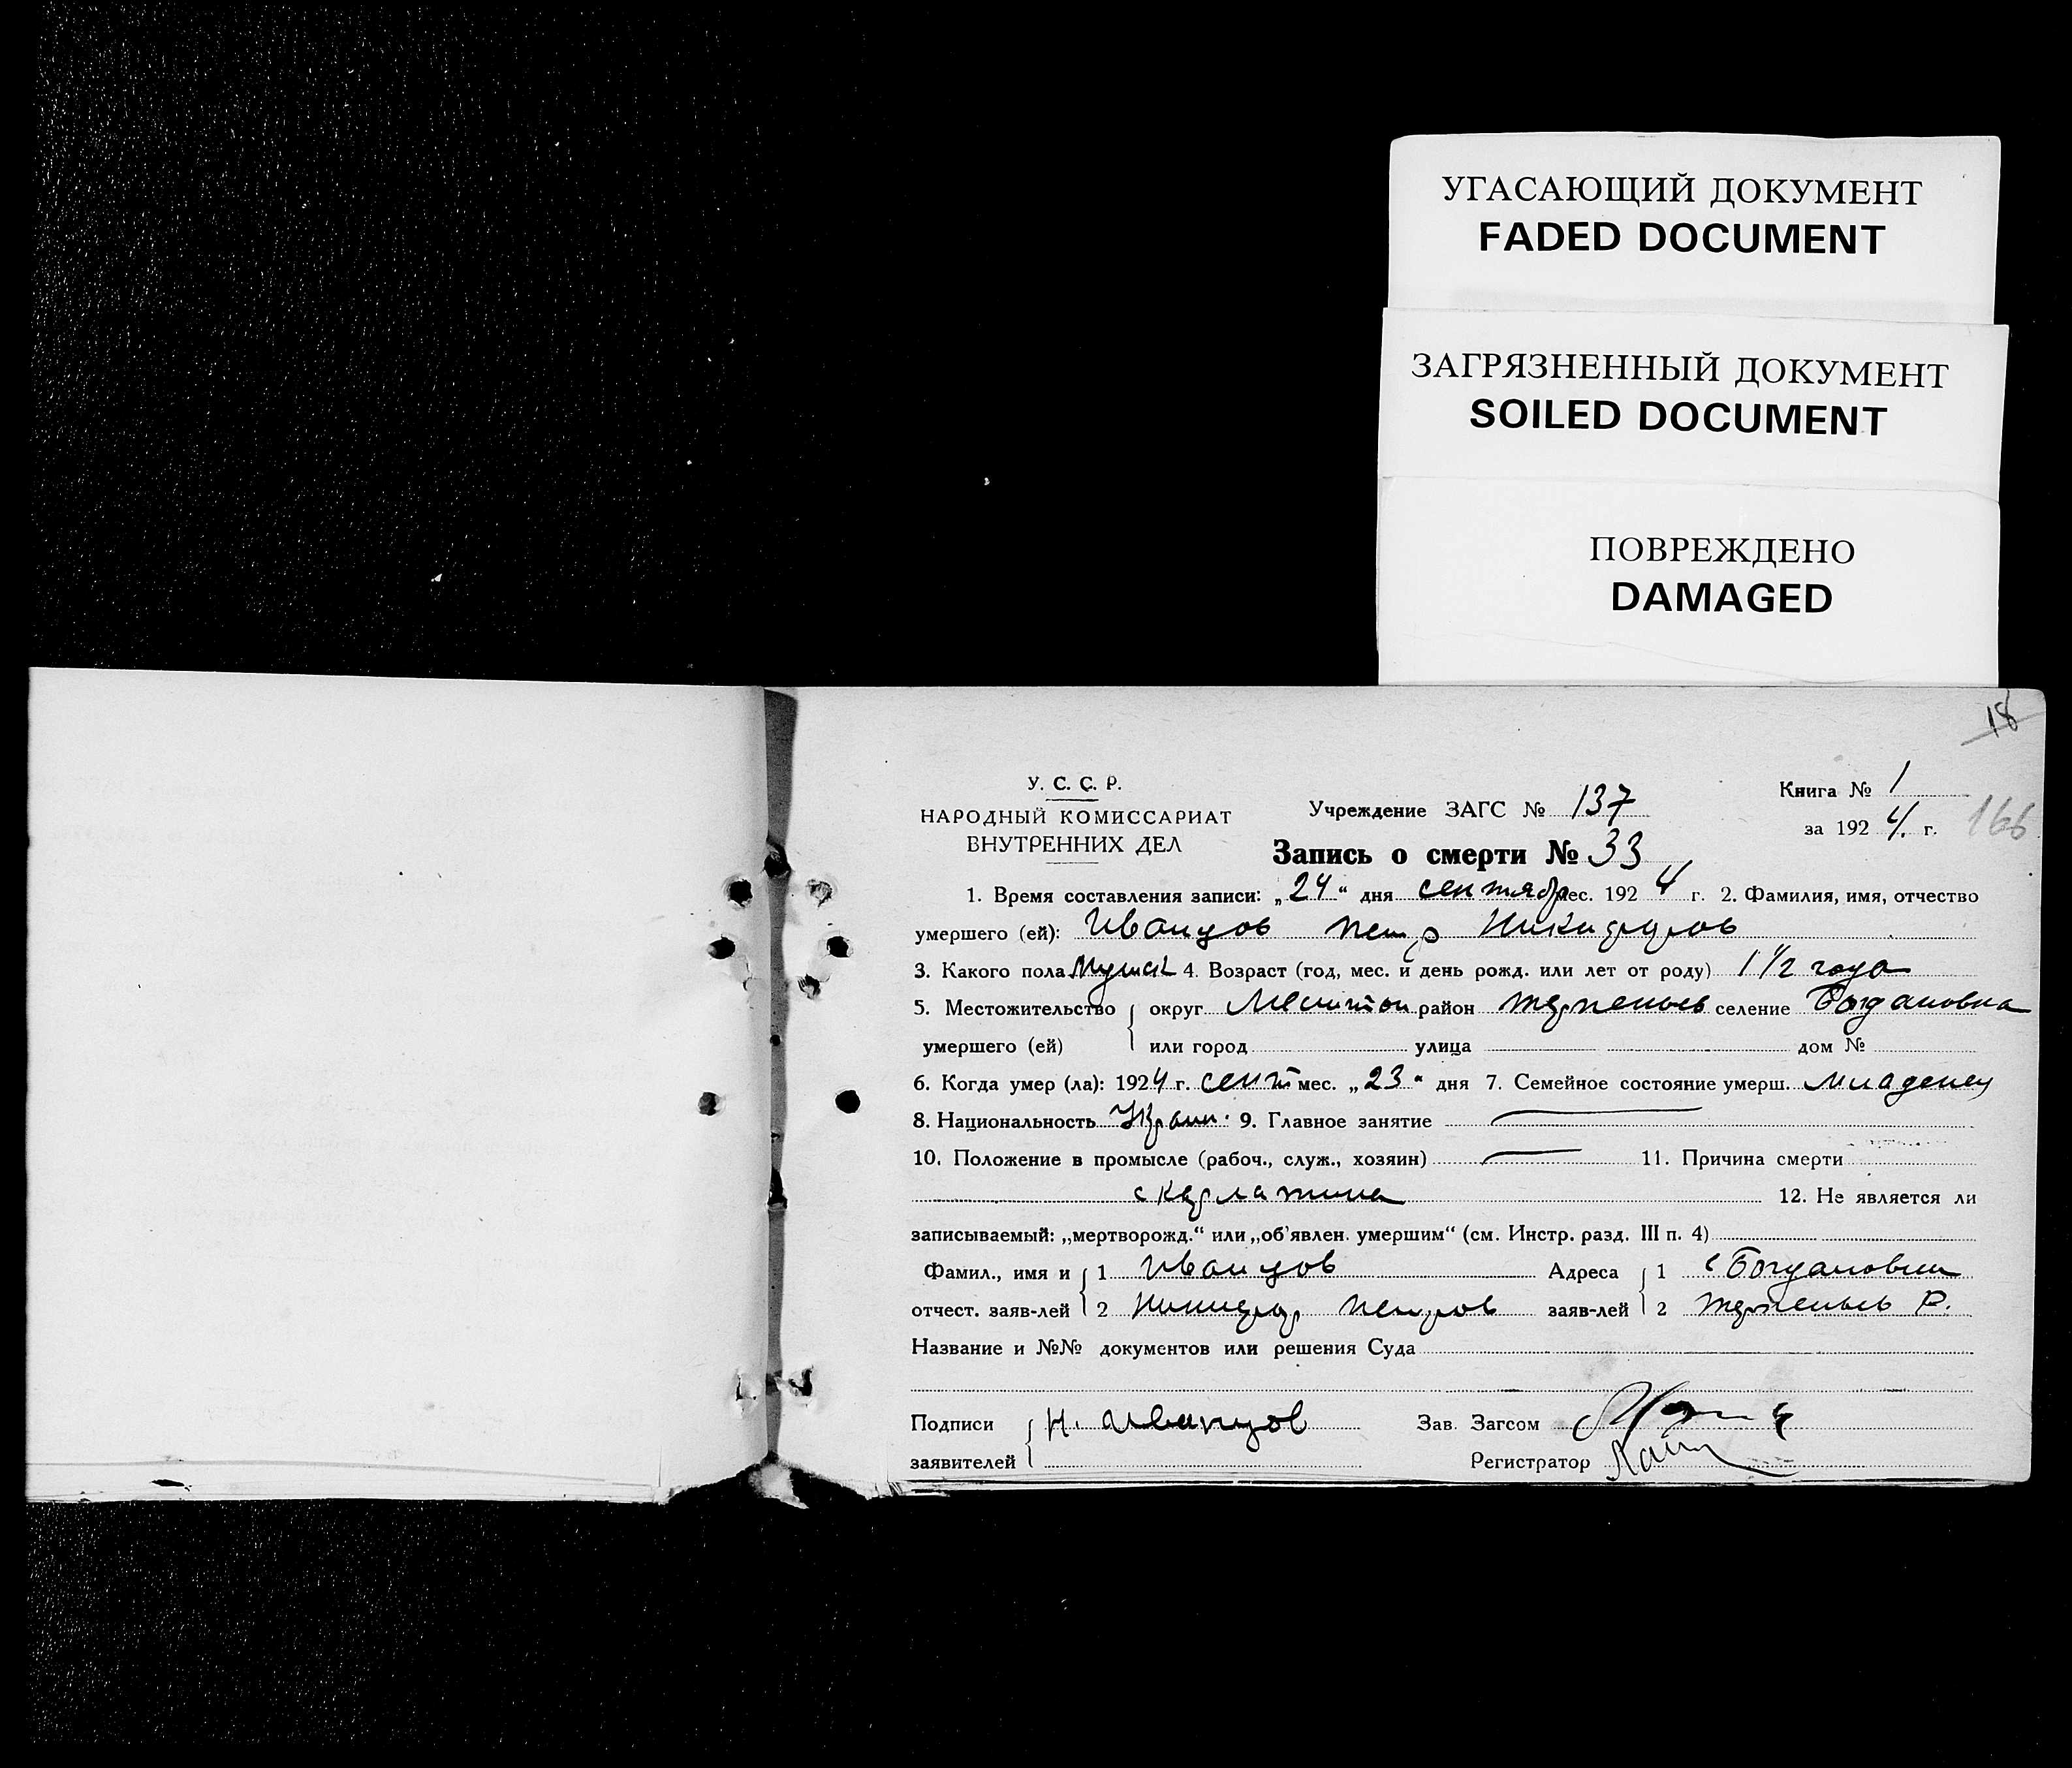 УГАСАЮЩИЙ ДОКУМЕНТ
FADED DOCUMENT
ЗАГРЯЗНЕННЫЙ ДОКУМЕНТ
SOILED DOCUMENT
ПОВРЕЖДЕНО
DAMAGED
18
У. С. С. Р.
НАРОДНЫЙ КОМИССАРИАТ
ВНУТРЕННИХ ДЕЛ
Учреждение ЗАГС № 137
Книга № 1
за 192 4. г. 166
Запись о смерти № 33
1. Время составления записи: „24“ дня сентябр мес. 192 4 г. 2. Фамилия, имя, отчество
умершего (ей): Иванцов Петр Никифоров
3. Какого пола Мужск 4. Возраст (год, мес. и день рожд. или лет от роду) 1 1/2 года
5. Местожительство округ Мелитоп район Терпеньев селение Богдановка
умершего (ей) или город улица дом №
6. Когда умер (ла): 1924 г. сент мес. „23“ дня 7. Семейное состояние умерш. младенец
8. Национальность Украин. 9. Главное занятие
10. Положение в промысле (рабоч., служ., хозяин) 11. Причина смерти
скарлатина 12. Не является ли
записываемый: „мертворожд.“ или „об'явлен. умершим“ (см. Инстр. разд. III п. 4)
Фамил., имя и 1 Иванцов Адреса 1 с Богдановки
отчест. заяв-лей 2 Никифор Петров заяв-лей 2 Терпеньев Р.
Название и №№ документов или решения Суда
Подписи Н. Иванцов Зав. Загсом
заявителей Регистратор